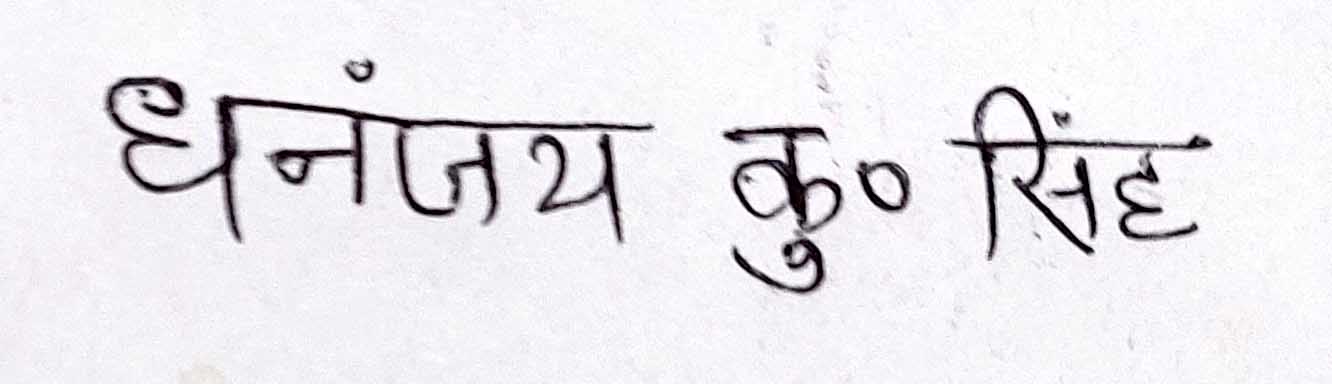 धनंजय कु० सिंह